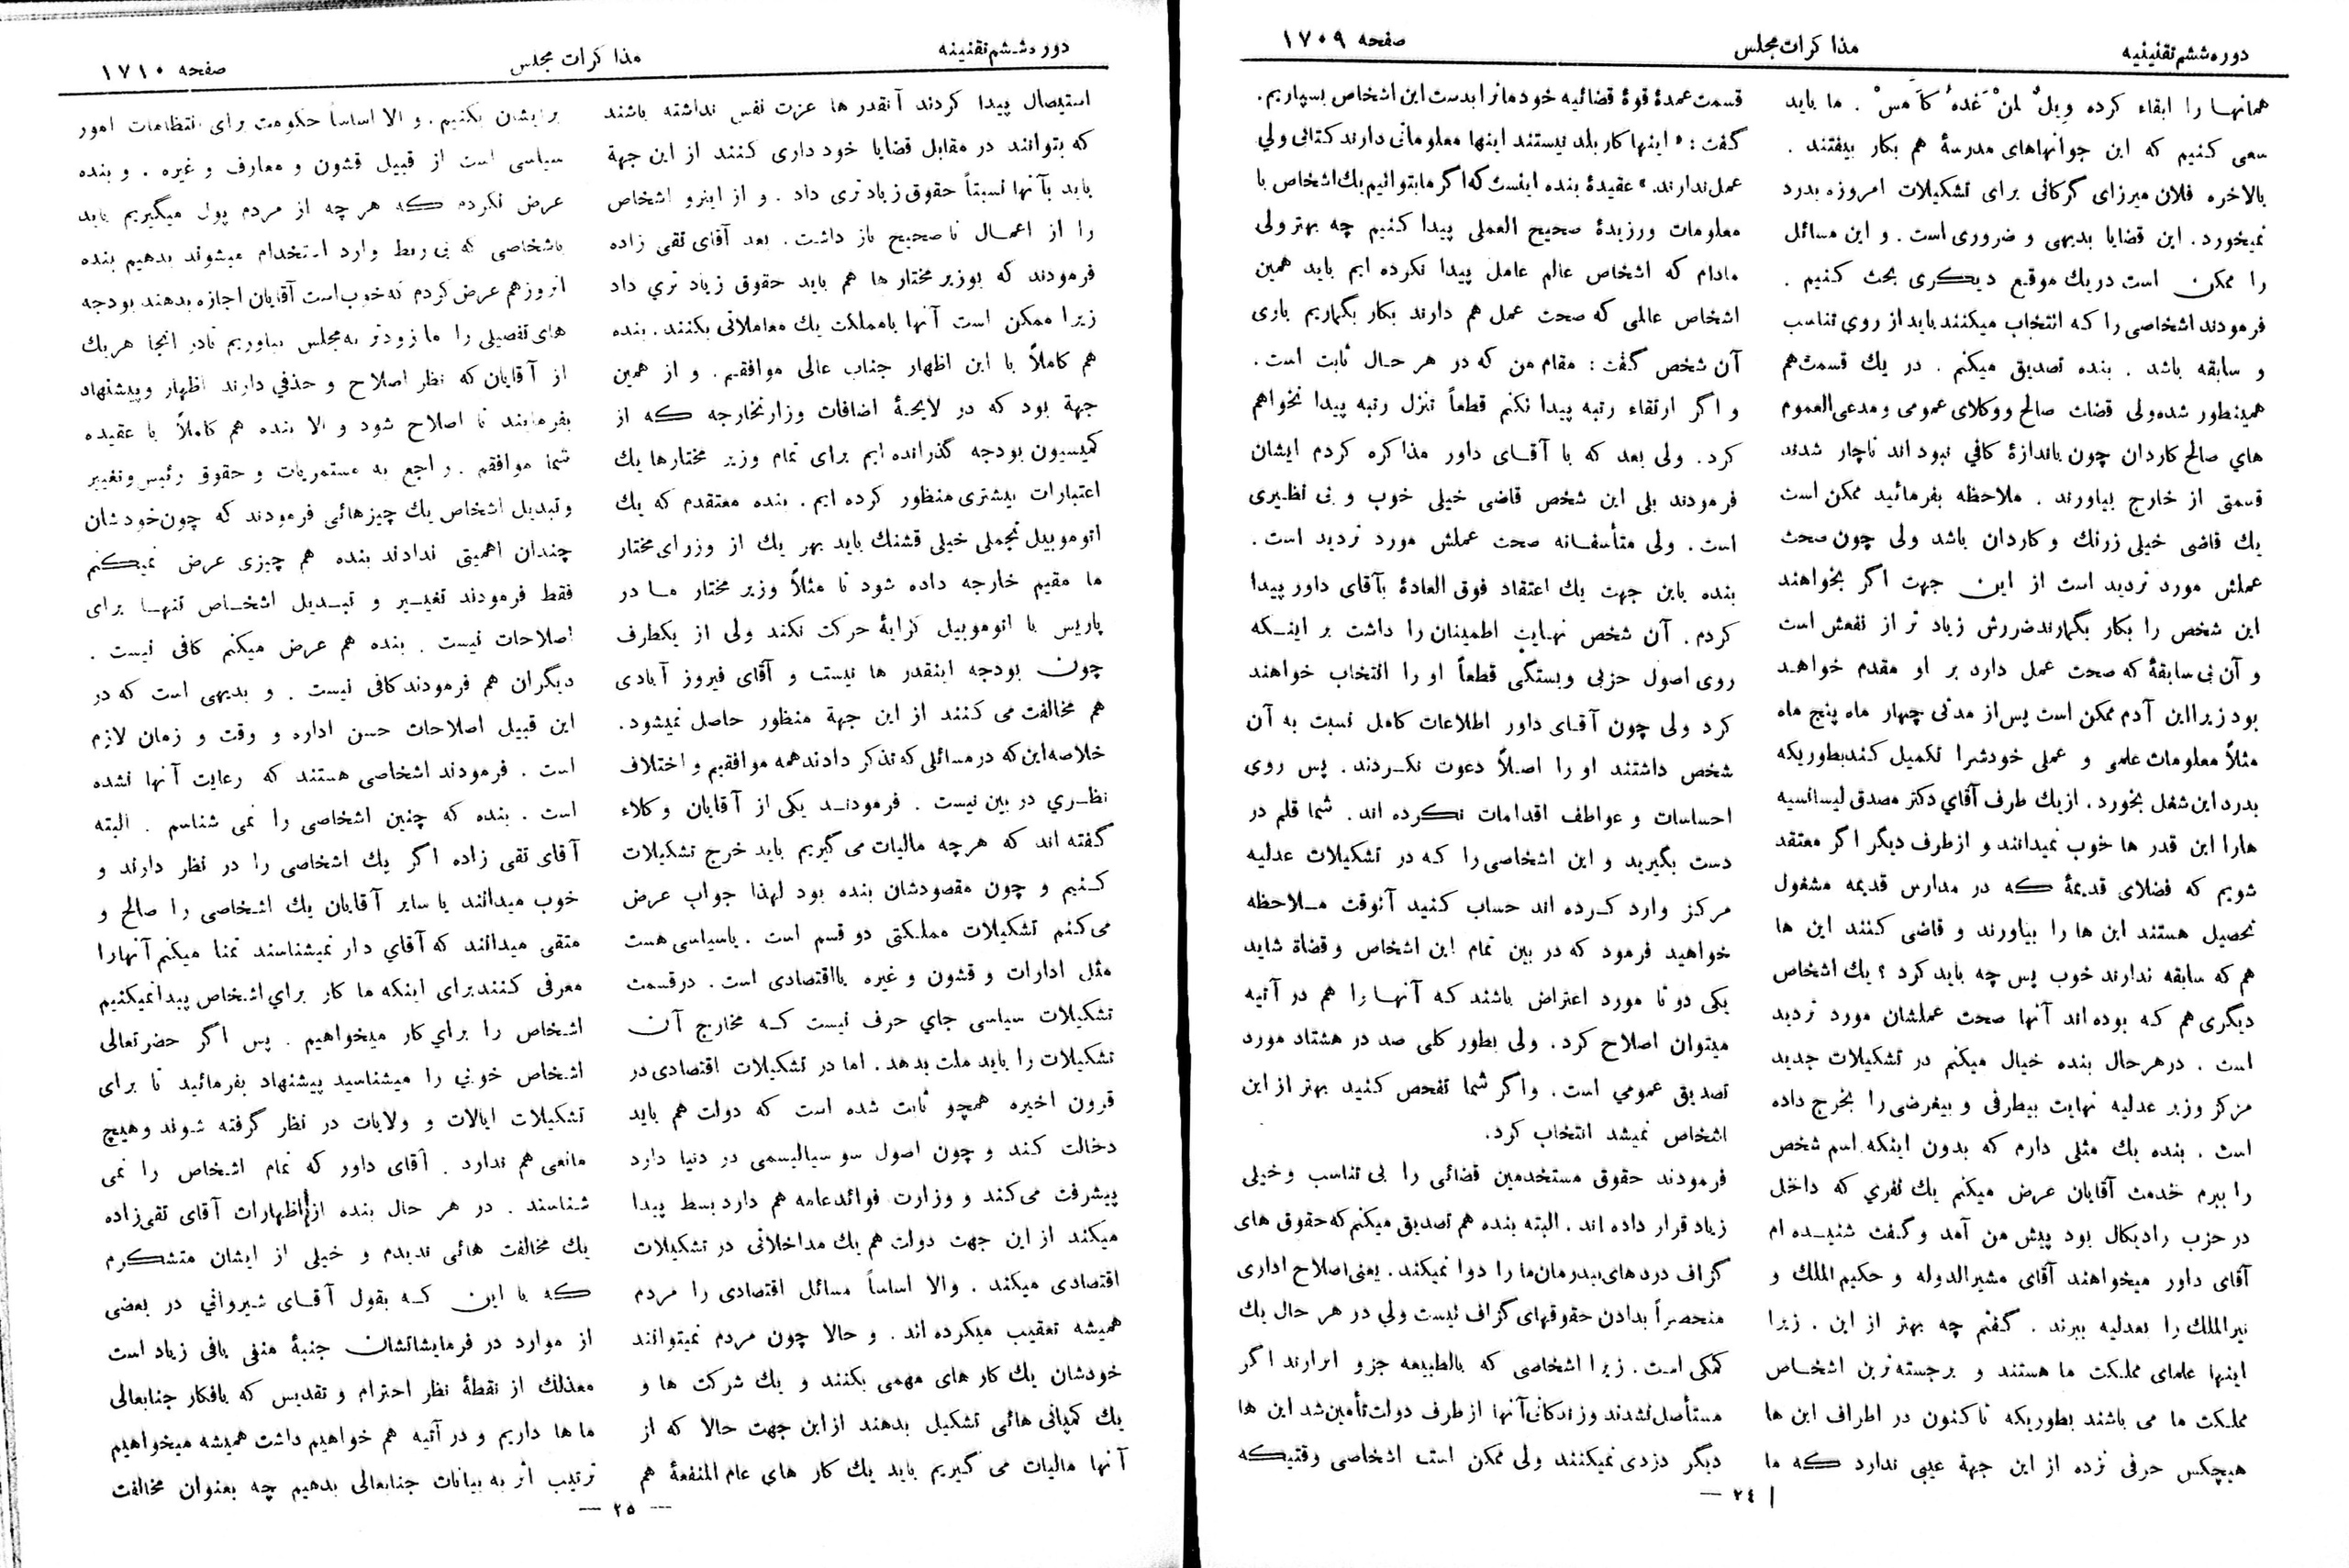 دوره ششم تقنینیه
مذاکرات مجلس
صفحه ۱۷۰۹
همانها را ابقاء کرده ویلٌ لمنْ غدهُ کاَمسْ . ما باید
سعی کنیم که این جوانهاهای مدرسهٔ هم بکار بیفتند .
بالاخره فلان میرزای گرکانی برای تشکیلات امروزه بدرد
نمیخورد . این قضایا بدیهی و ضروری است . و این مسائل
را ممکن است در یك موقع دیگری بحث کنیم .
فرمودند اشخاصی را که انتخاب میکنند باید از روی تناسب
و سابقه باشد . بنده تصدیق میکنم . در یك قسمت هم
همینطور شده ولی قضات صالح و وکلای عمومی و مدعی العموم
های صالح کاردان چون باندازهٔ کافی نبوداند ناچار شدند
قسمتی از خارج بیاورند . ملاحظه بفرمائید ممکن است
یك قاضی خیلی زرنك و کاردان باشد ولی چون صحت
عملش مورد تردید است از این جهت اگر بخواهند
این شخص را بکار بگمارند ضررش زیاد تر از نفعش است
و آن بی سابقهٔ که صحت عمل دارد بر او مقدم خواهد
بود زیرا این آدم ممکن است پس از مدتی چهار ماه پنج ماه
مثلاً معلومات علمی و عملی خودشرا تکمیل کند بطوریکه
بدرد این شغل بخورد . از یك طرف آقای دکتر مصدق لیسانسیه
هارا این قدر ها خوب نمیدانند و از طرف دیگر اگر معتقد
شویم که فضلای قدیمهٔ که در مدارس قدیمه مشغول
تحصیل هستند این ها را بیاورند و قاضی کنند این ها
هم که سابقه ندارند خوب پس چه باید کرد ؟ یك اشخاص
دیگری هم که بوده اند آنها صحت عملشان مورد تردید
است . در هر حال بنده خیال میکنم در تشکیلات جدید
مرکز وزیر عدلیه نهایت بیطرفی و بیغرضی را بخرج داده
است . بنده یك مثلی دارم که بدون اینکه اسم شخص
را ببرم خدمت آقایان عرض میکنم یك نفری که داخل
در حزب رادیکال بود پیش من آمد و گفت شنیده ام
آقای داور میخواهند آقای مشیرالدوله و حکیم الملك و
نیرالملك را بعدلیه ببرند . گفتم چه بهتر از این . زیرا
اینها علمای مملکت ما هستند و برجسته ترین اشخاص
مملکت ما می باشند بطوریکه تاکنون در اطراف این ها
هیچکس حرفی نزده از این جهة عیبی ندارد که ما
قسمت عمدهٔ قوهٔ قضائیه خودمانرا بدست این اشخاص بسپاریم .
گفت : « اینها کار بلد نیستند اینها معلوماتی دارند کتابی ولی
عمل ندارند . » عقیدهٔ بنده اینست که اگر ما بتوانیم یك اشخاص با
معلومات ورزیدهٔ صحیح العملی پیدا کنیم چه بهتر ولی
مادام که اشخاص عالم عامل پیدا نکرده ایم باید همین
اشخاص عالمی که صحت عمل هم دارند بکار بگماریم باری
آن شخص گفت : مقام من که در هر حال ثابت است .
و اگر ارتقاء رتبه پیدا نکنم قطعاً تنزل رتبه پیدا نخواهم
کرد . ولی بعد که با آقای داور مذاکره کردم ایشان
فرمودند بلی این شخص قاضی خیلی خوب و بی نظیری
است . ولی متأسفانه صحت عملش مورد تردید است .
بنده باین جهت یك اعتقاد فوق العادهٔ بآقای داور پیدا
کردم . آن شخص نهایت اطمینان را داشت بر اینکه
روی اصول حزبی و بستگی قطعاً او را انتخاب خواهند
کرد ولی چون آقای داور اطلاعات کامل نسبت به آن
شخص داشتند او را اصلاً دعوت نکردند . پس روی
احساسات و عواطف اقدامات نکرده اند . شما قلم در
دست بگیرید و این اشخاصی را که در تشکیلات عدلیه
مرکز وارد کرده اند حساب کنید آنوقت ملاحظه
خواهید فرمود که در بین تمام این اشخاص و قضاة شاید
یکی دو تا مورد اعتراض باشند که آنها را هم در آتیه
میتوان اصلاح کرد . ولی بطور کلی صد در هشتاد مورد
تصدیق عمومی است . و اگر شما تفحص کنید بهتر از این
اشخاص نمیشد انتخاب کرد .
فرمودند حقوق مستخدمین قضائی را بی تناسب و خیلی
زیاد قرار داده اند . البته بنده هم تصدیق میکنم که حقوق های
گزاف دردهای بیدرمان ما را دوا نمیکند . یعنی اصلاح اداری
منحصراً بدادن حقوقهای گزاف نیست ولی در هر حال یك
کمکی است . زیرا اشخاصی که بالطبیعه جزو ابرارند اگر
مستأصل نشدند و زندکانی آنها از طرف دولت تأمین شد این ها
دیگر دزدی نمیکنند ولی ممکن است اشخاصی وقتیکه
— ۲٤
دوره ششم تقنینه
مذاکرات مجلس
صفحه ۱۷۱۰
استیصال پیدا کردند آنقدر ها عزت نفس نداشته باشند
که بتوانند در مقابل قضایا خود داری کنند از این جهة
باید بآنها نسبتاً حقوق زیاد تری داد . و از اینرو اشخاص
را از اعمال ناصحیح باز داشت . بعد آقای تقی زاده
فرمودند که بوزیر مختار ها هم باید حقوق زیاد تری داد
زیرا ممکن است آنها بامملکت یك معاملاتی بکنند . بنده
هم کاملاً با این اظهار جناب عالی موافقم . و از همین
جهة بود که در لایحهٔ اضافات وزارتخارجه که از
کمیسیون بودجه گذرانده ایم برای تمام وزیر مختارها یك
اعتبارات بیشتری منظور کرده ایم . بنده معتقدم که یك
اتوموبیل تجملی خیلی قشنك باید بهر یك از وزرای مختار
ما مقیم خارجه داده شود تا مثلاً وزیر مختار ما در
پاریس با اتوموبیل کرایهٔ حرکت نکند ولی از یکطرف
چون بودجه اینقدر ها نیست و آقای فیروز آبادی
هم مخالفت می کنند از این جهة منظور حاصل نمیشود .
خلاصه این که در مسائلی که تذکر دادند همه موافقیم و اختلاف
نظری در بین نیست . فرمودند یکی از آقایان وکلاء
گفته اند که هرچه مالیات می گیریم باید خرج تشکیلات
کنیم و چون مقصودشان بنده بود لهذا جواب عرض
می کنم تشکیلات مملکتی دو قسم است . یاسیاسی هست
مثل ادارات و قشون و غیره یااقتصادی است . درقسمت
تشکیلات سیاسی جای حرف نیست که مخارج آن
تشکیلات را باید ملت بدهد . اما در تشکیلات اقتصادی در
قرون اخیره همچو ثابت شده است که دولت هم باید
دخالت کند و چون اصول سوسیالیسمی در دنیا دارد
پیشرفت می کند و وزارت فوائدعامه هم دارد بسط پیدا
میکند از این جهت دولت هم یك مداخلاتی در تشکیلات
اقتصادی میکند . والا اساساً مسائل اقتصادی را مردم
همیشه تعقیب میکرده اند . و حالا چون مردم نمیتوانند
خودشان یك کار های مهمی بکنند و یك شرکت ها و
یك کمپانی هائی تشکیل بدهند از این جهت حالا که از
آنها مالیات می گیریم باید یك کار های عام المنفعهٔ هم
برایشان بکنیم . و الا اساساً حکومت برای انتظامات امور
سیاسی است از قبیل قشون و معارف و غیره . و بنده
عرض نکردم که هر چه از مردم پول میگیریم باید
باشخاصی که بی ربط وارد استخدام میشوند بدهیم بنده
آنروزهم عرض کردم که خوب است آقایان اجازه بدهند بودجه
های تفصیلی را ما زودتر به مجلس بیاوریم تادر آنجا هر یك
از آقایان که نظر اصلاح و حذفی دارند اظهار و پیشنهاد
بفرمایند تا اصلاح شود و الا بنده هم کاملاً با عقیده
شما موافقم . راجع به مستمریات و حقوق رئیس و تغییر
و تبدیل اشخاص یك چیزهائی فرمودند که چون خودشان
چندان اهمیتی ندادند بنده هم چیزی عرض نمیکنم
فقط فرمودند تغییر و تبدیل اشخاص تنها برای
اصلاحات نیست . بنده هم عرض میکنم کافی نیست .
دیگران هم فرمودند کافی نیست . و بدیهی است که در
این قبیل اصلاحات حسن اداره و وقت و زمان لازم
است . فرمودند اشخاصی هستند که رعایت آنها نشده
است . بنده که چنین اشخاصی را نمی شناسم . البته
آقای تقی زاده اگر یك اشخاصی را در نظر دارند و
خوب میدانند یا سایر آقایان یك اشخاصی را صالح و
متقی میدانند که آقای دار نمیشناسند تمنا میکنم آنهارا
معرفی کنند برای اینکه ما کار برای اشخاص پیدا نمیکنیم
اشخاص را برای کار میخواهیم . پس اگر حضرتعالی
اشخاص خوبی را میشناسید پیشنهاد بفرمائید تا برای
تشکیلات ایالات و ولایات در نظر گرفته شوند و هیچ
مانعی هم ندارد . آقای داور که تمام اشخاص را نمی
شناسند . در هر حال بنده از اظهارات آقای تقی زاده
یك مخالفت هائی ندیدم و خیلی از ایشان متشکرم
که با این که بقول آقای شیروانی در بعضی
از موارد در فرمایشاتشان جنبهٔ منفی بافی زیاد است
معذلك از نقطهٔ نظر احترام و تقدیس که بافکار جنابعالی
ما ها داریم و در آتیه هم خواهیم داشت همیشه میخواهیم
ترتیب اثر به بیانات جنابعالی بدهیم چه بعنوان مخالفت
— ۲۵ —